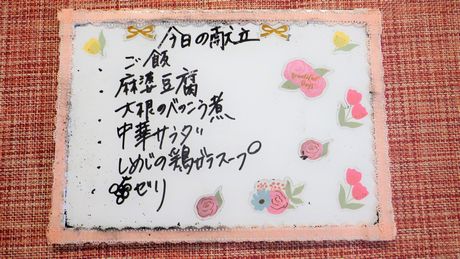 今日の献立
・ご飯
・麻婆豆腐
・大根のべっこう煮
・中華サラダ
・しめじの鶏ガラスープ
・ゼリー